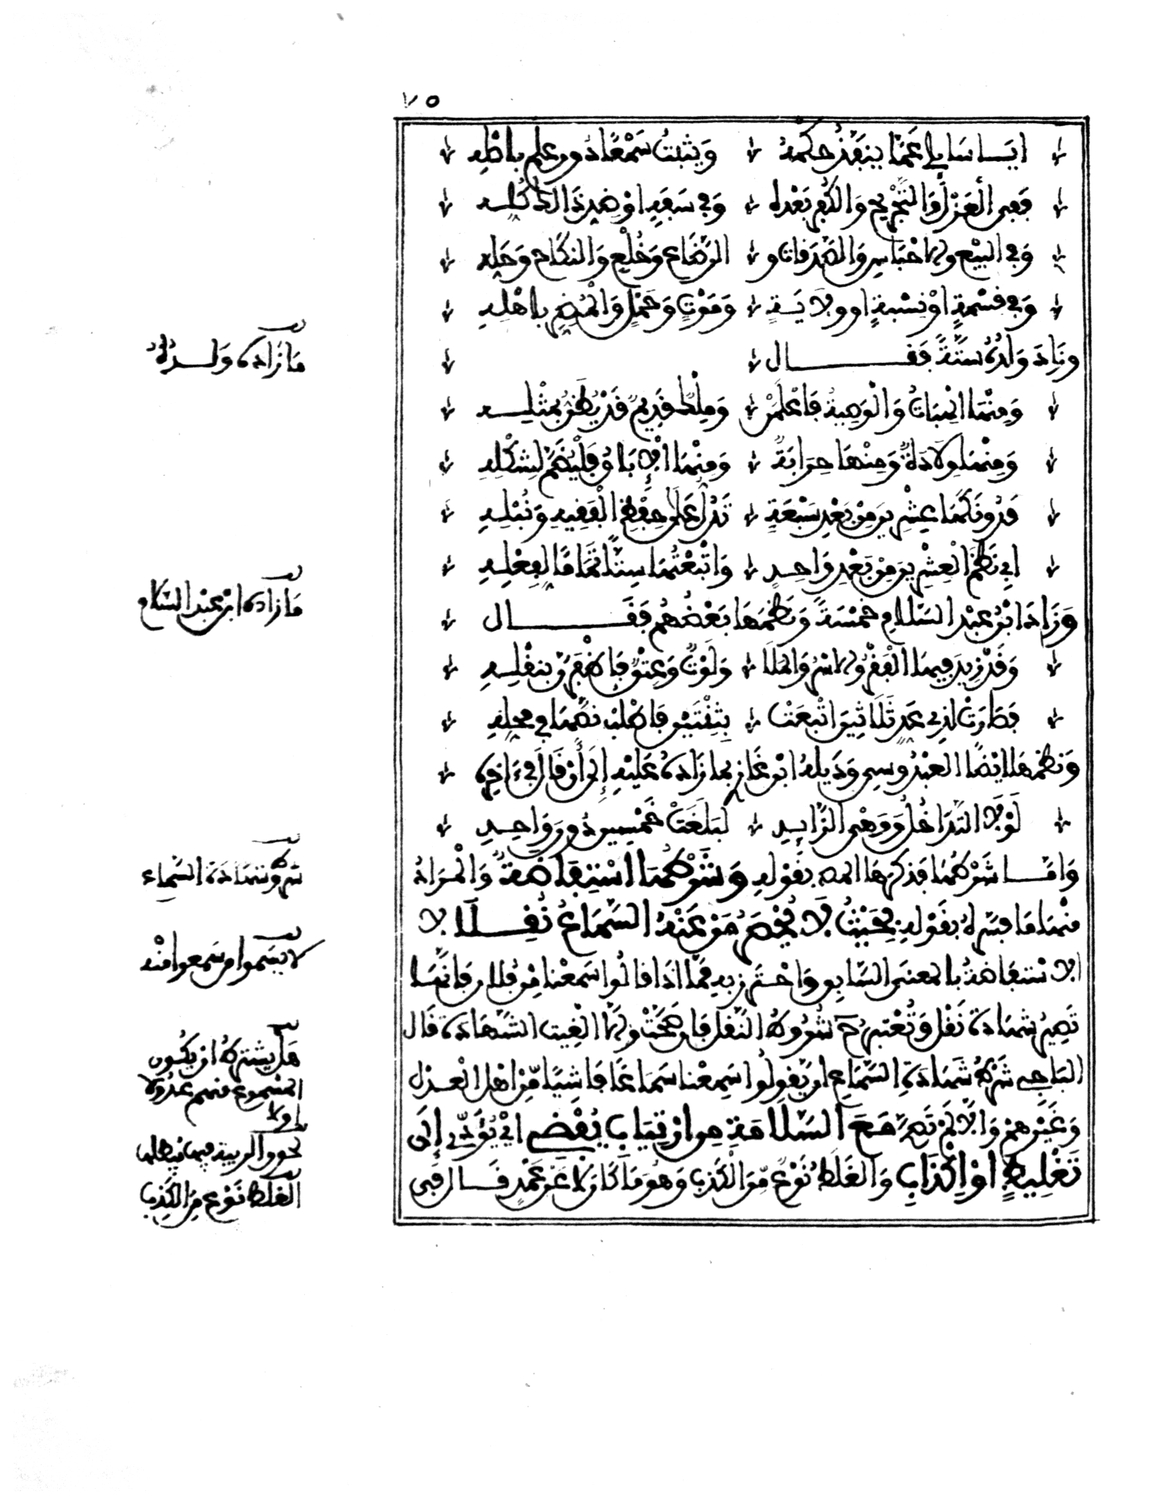 ٧٥
ايا سايلا عما ينفذ حكمه ويثبت سمعا دون علم باصله
ففي العزل والتجريح والكفر بعده وفي سفه او ضد ذالك كله
وفي البيع والاحباس والصدقات و الرضاع وخلع والنكاح وحله
وفي قسمة او نسبة او ولاية وموت وحمل والمضر باهله
وزاد ولده ستة فقال
ومنها الهبات والوصية فاعلمن وملك قديم قد يظن بمثله
ومنها ولادة ومنها حرابة ومنها الاباق فليضم لشكله
فدونكها عشرين من بعد سبعة تدل على حفظ الفقيه ونبله
ابي نظم العشرين من بعد واحد واتبعتها ستا تماما لفعله
وزاد ابن عبد السلام خمسة ونظمها بعضهم فقال
وقد زيد فيها الفقر والاسر والملا ولوث وعتق فاظفرن بنقله
فصارت لذي عد ثلاثين اتبعت بثنتين فاطلب نصها في محله
ونظمها ايضا العبدوسي وذيله ابن غاز بما زاده عليه إلى أن قال في ءاخره
لولا التداخل ووهي الزايد لبلغت خمسين دون واحد
واما شروطها فذكرها المص بقوله وشرطها استفاضة والمراد
منها ما فسره بقوله بحيث لا يحصر من عنه السماع نقلا لا
الاستفاضة بالمعنى السابق واحترز به مما اذا قالوا سمعنا من فلان فانها
تصير شهادة نقل وتعتبر ح شروط النقل فان صحت والا الغيت الشهادة قال
الباجي شرط شهادة السماع ان يقولوا سمعنا سماعا فاشيا من اهل العدل
وغيرهم والا لم تصح مع السلامة من ارتياب يفضي اي يؤدي إلى
تغليط او إكذاب والغلط نوع من الكذب وهو ما كان لا عن عمد قال في
ما زاده ولده
ما زاده ابن عبد السلام
شروط شهادة السماع
لا يسموا من سمعوا منه
هل يشترط ان يكون
المسموع منهم عدولا
او لا
الغلط نوع من الكذب